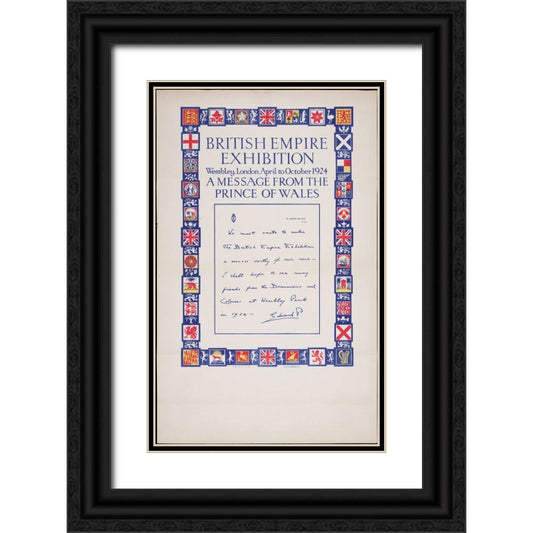 BRITISH EMPIRE
EXHIBITION
Wembley, London, April to October 1924
A MESSAGE FROM THE
PRINCE OF WALES
We must unite to make
the British Empire Exhibition
a success worthy of our race –
I shall hope to see many
friends from the Dominions and
Colonies at Wembley Park
in 1924 –
Edward P